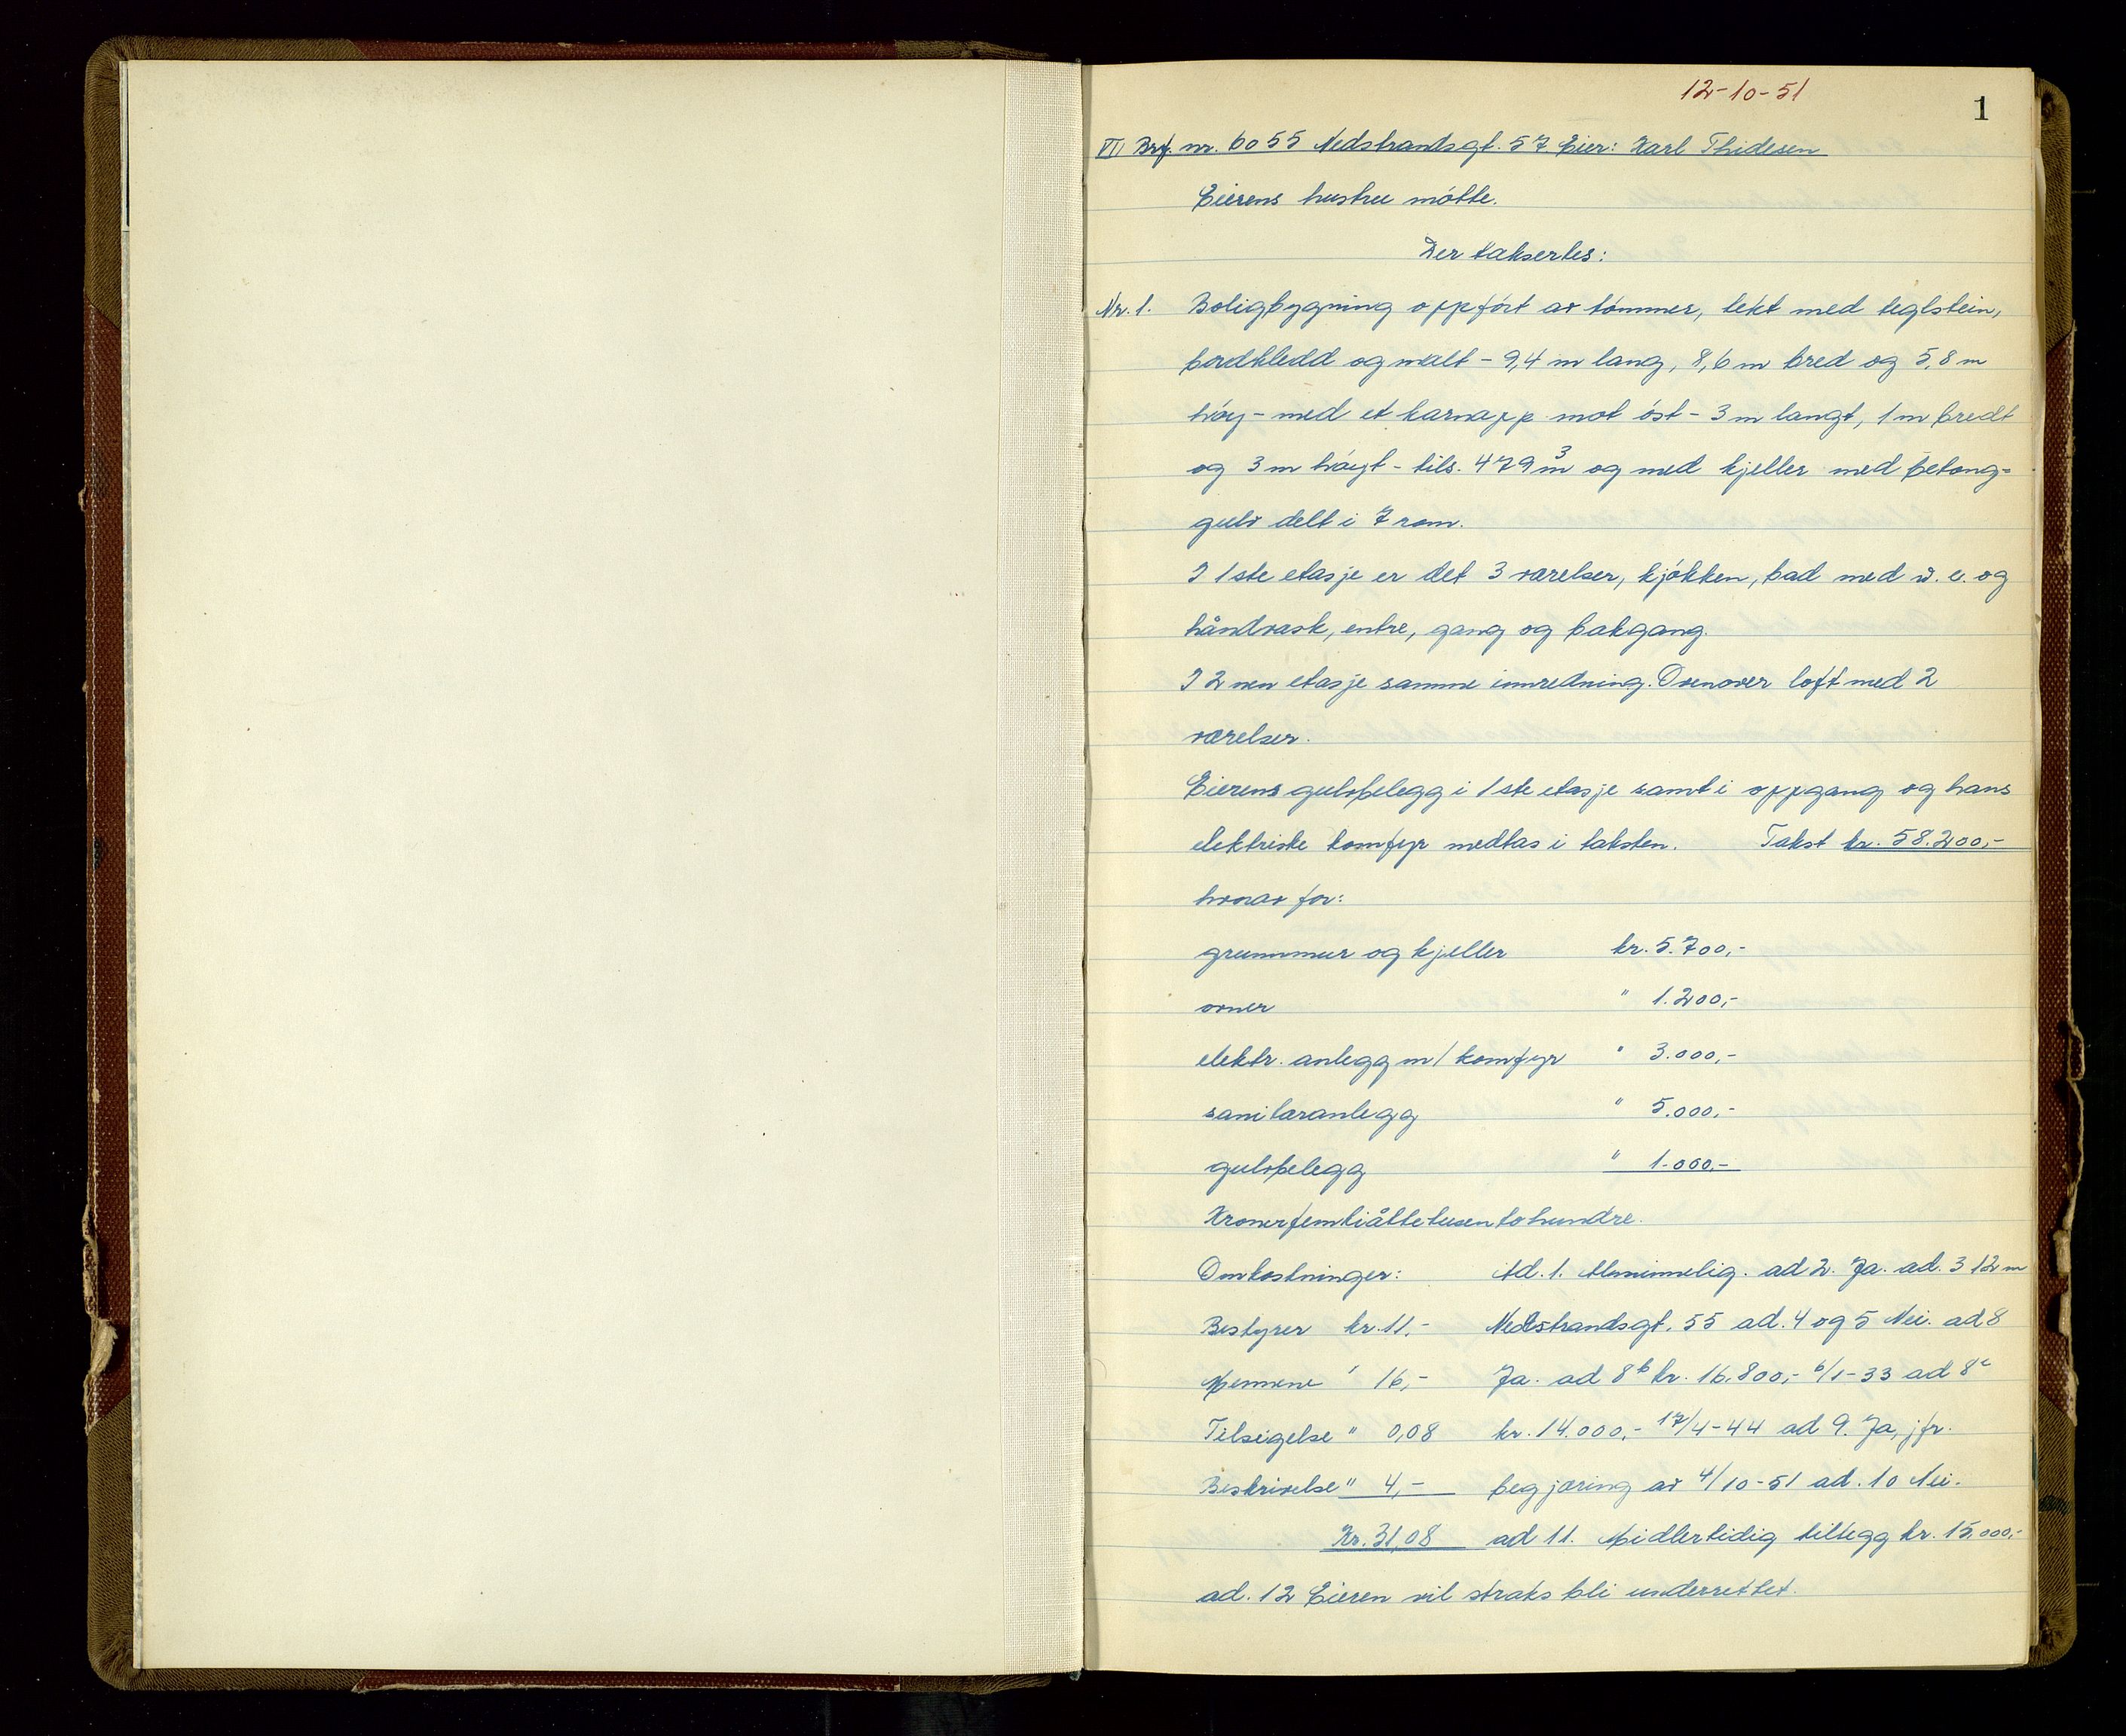 12-10-51
1
VII Brf. nr. 6055 Nedstrandsgt. 57. Eier: Karl Thidesen
Eierens hustru møtte.
Der taksertes:
Nr. 1. Boligbygning oppført av tømmer, tekt med teglstein,
bordkledd og malt - 9,4 m lang, 8,6 m bred og 5,8 m
høy - med et karnapp mot øst - 3 m langt, 1 m bredt
og 3 m høyt - tils. 479 m³ og med kjeller med betong-
gulv delt i 7 rom.
I 1ste etasje er det 3 værelser, kjøkken, bad med w.c. og
håndvask, entre, gang og bakgang.
I 2nen etasje samme innredning. Ovenover loft med 2
værelser.
Eierens gulvbelegg i 1ste etasje samt i oppgang og hans
elektriske komfyr medtas i taksten. Takst kr. 58.200,-
hvorav for:
grunnmur og kjeller kr. 5.700,-
ovner " 1.200,-
elektr. anlegg m/komfyr " 3.000,-
sanitæranlegg " 5.000,-
gulvbelegg " 1.000,-
Kroner femtiåttetusentohundre.
Omkostninger: Ad. 1. Alminnelig. ad 2. Ja. ad. 3 12 m
Bestyrer kr. 11,- Nedstrandsgt. 55 ad. 4 og 5 Nei. ad 8
Mennene " 16,- Ja. ad 8b kr. 16.800,- 6/1-33 ad 8c
Tilsigelse " 0,08 kr. 14.000,- 17/4-44 ad 9. Ja, jfr.
Beskrivelse " 4,- begjæring av 4/10-51 ad. 10 Nei.
Kr. 31,08 ad 11. Midlertidig tillegg kr. 15.000,-
ad. 12 Eieren vil straks bli underrettet.